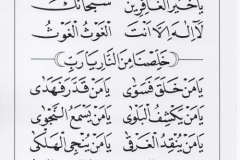 يَا خَيْرَ الْغَافِرِينَ سُبْحَانَكَ
لَا إِلٰهَ إِلَّا أَنْتَ الْغَوْثُ الْغَوْثُ
خَلِّصْنَا مِنَ النَّارِ يَا رَبِّ
يَا مَنْ خَلَقَ فَسَوَّى يَا مَنْ قَدَّرَ فَهَدَى
يَا مَنْ يَكْشِفُ الْبَلْوَى يَا مَنْ يَسْمَعُ النَّجْوَى
يَا مَنْ يُنْقِذُ الْغَرْقَى يَا مَنْ يُنْجِي الْهَلْكَى